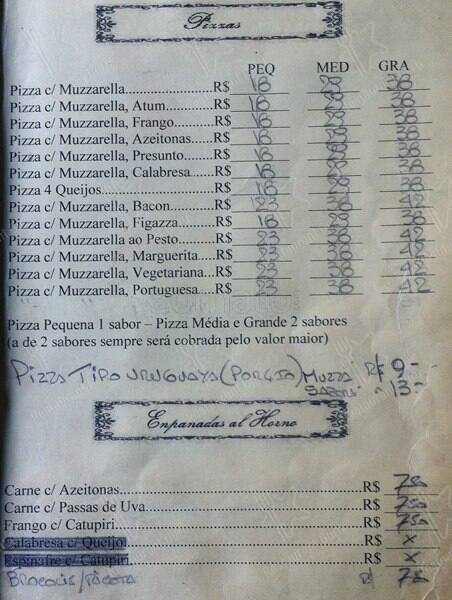 Pizzas
PEQ MED GRA
Pizza c/ Muzzarella....................R$ 18 28 38
Pizza c/ Muzzarella, Atum............R$ 18 28 38
Pizza c/ Muzzarella, Frango.........R$ 18 28 38
Pizza c/ Muzzarella, Azeitonas.....R$ 18 28 38
Pizza c/ Muzzarella, Presunto.......R$ 18 28 38
Pizza c/ Muzzarella, Calabresa.....R$ 18 28 38
Pizza 4 Queijos............................R$ 18 28 38
Pizza c/ Muzzarella, Bacon..........R$ 23 38 42
Pizza c/ Muzzarella, Figazza........R$ 18 28 38
Pizza c/ Muzzarella ao Pesto........R$ 23 38 42
Pizza c/ Muzzarella, Marguerita....R$ 23 38 42
Pizza c/ Muzzarella, Vegetariana...R$ 23 38 42
Pizza c/ Muzzarella, Portuguesa....R$ 23 38 42
Pizza Pequena 1 sabor – Pizza Média e Grande 2 sabores
(a de 2 sabores sempre será cobrada pelo valor maior)
PIZZA TIPO URUGUAYA (PORÇÃO) MUZZA R$ 9-
" 13-
Empanadas al Horno
Carne c/ Azeitonas..........................................................R$ 7,50
Carne c/ Passas de Uva....................................................R$ 7,50
Frango c/ Catupiri............................................................R$ 7,50
Calabresa c/ Queijo..........................................................R$ x
Espinafre c/ Catupiri.........................................................R$ x
BROCOLIS/RICOTA R$ 7,50